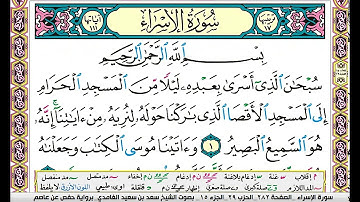 سُورَةُ الْإِسْرَاءِ
بِسْمِ اللَّهِ الرَّحْمَٰنِ الرَّحِيمِ
سُبْحَانَ الَّذِي أَسْرَىٰ بِعَبْدِهِ لَيْلًا مِنَ الْمَسْجِدِ الْحَرَامِ
إِلَى الْمَسْجِدِ الْأَقْصَا الَّذِي بَارَكْنَا حَوْلَهُ لِنُرِيَهُ مِنْ ءَايَاتِنَا إِنَّهُ
هُوَ السَّمِيعُ الْبَصِيرُ ١ وَءَاتَيْنَا مُوسَى الْكِتَابَ وَجَعَلْنَاهُ
سورة الإسراء الصفحة ٢٨٢ الحزب ٢٩ الجزء ١٥ بصوت الشيخ سعد بن سعيد الغامدي برواية حفص عن عاصم